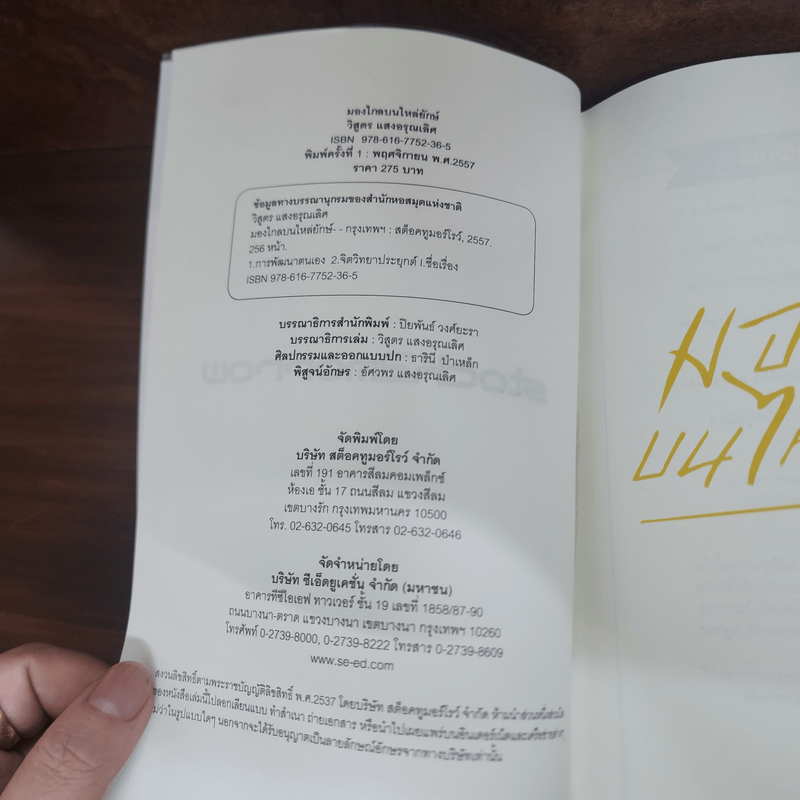 มองไกลบนไหล่ยักษ์
วิสูตร แสงอรุณเลิศ
ISBN 978-616-7752-36-5
พิมพ์ครั้งที่ 1 : พฤศจิกายน พ.ศ.2557
ราคา 275 บาท
ข้อมูลทางบรรณานุกรมของสำนักหอสมุดแห่งชาติ
วิสูตร แสงอรุณเลิศ
มองไกลบนไหล่ยักษ์- - กรุงเทพฯ : สต็อคทูมอร์โรว์, 2557.
256 หน้า.
1.การพัฒนาตนเอง 2.จิตวิทยาประยุกต์ I.ชื่อเรื่อง
ISBN 978-616-7752-36-5
บรรณาธิการสำนักพิมพ์ : ปิยพันธ์ วงศ์ยะรา
บรรณาธิการเล่ม : วิสูตร แสงอรุณเลิศ
ศิลปกรรมและออกแบบปก : ธารินี ป่าเหล็ก
พิสูจน์อักษร : อัศวพร แสงอรุณเลิศ
จัดพิมพ์โดย
บริษัท สต็อคทูมอร์โรว์ จำกัด
เลขที่ 191 อาคารสีลมคอมเพล็กซ์
ห้องเอ ชั้น 17 ถนนสีลม แขวงสีลม
เขตบางรัก กรุงเทพมหานคร 10500
โทร. 02-632-0645 โทรสาร 02-632-0646
จัดจำหน่ายโดย
บริษัท ซีเอ็ดยูเคชั่น จำกัด (มหาชน)
อาคารทีซีไอเอฟ ทาวเวอร์ ชั้น 19 เลขที่ 1858/87-90
ถนนบางนา-ตราด แขวงบางนา เขตบางนา กรุงเทพฯ 10260
โทรศัพท์ 0-2739-8000, 0-2739-8222 โทรสาร 0-2739-8609
www.se-ed.com
สงวนลิขสิทธิ์ตามพระราชบัญญัติลิขสิทธิ์ พ.ศ.2537 โดยบริษัท สต็อคทูมอร์โรว์ จำกัด ห้ามนำส่วนหนึ่งส่วนใด
ของหนังสือเล่มนี้ไปลอกเลียนแบบ ทำสำเนา ถ่ายเอกสาร หรือนำไปเผยแพร่บนอินเตอร์เน็ตและเครือข่ายต่างๆ
ไม่ว่าในรูปแบบใดๆ นอกจากจะได้รับอนุญาตเป็นลายลักษณ์อักษรจากทางบริษัทเท่านั้น
บนไ